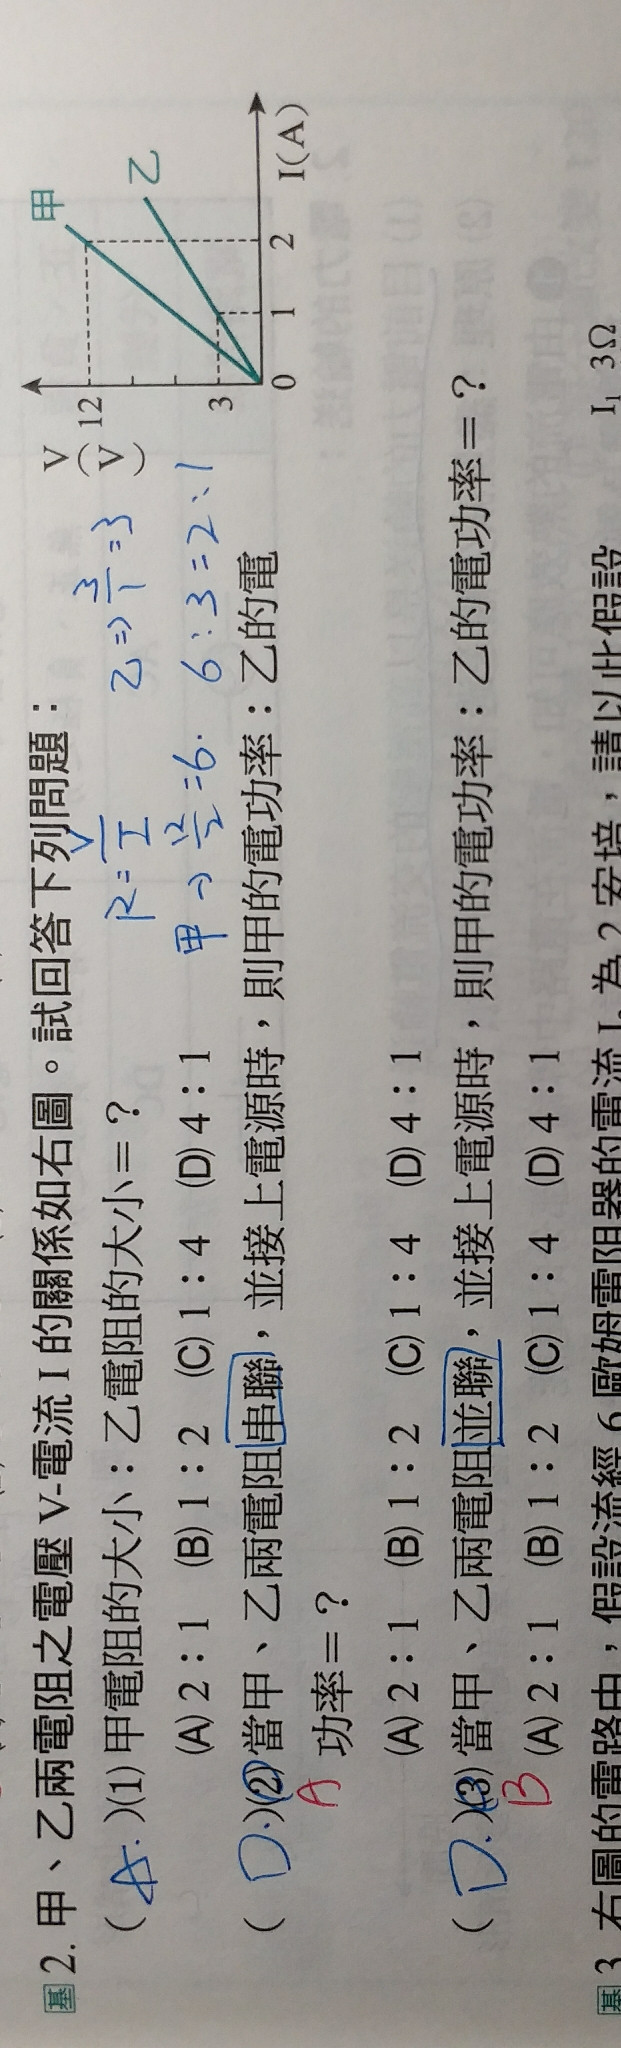 基 2. 甲、乙兩電阻之電壓 V-電流 I 的關係如右圖。試回答下列問題：
( A. )(1) 甲電阻的大小：乙電阻的大小＝？
(A) 2：1 (B) 1：2 (C) 1：4 (D) 4：1
R = V/I
乙 ⇒ 3/1 = 3
甲 → 12/2 = 6. 6 : 3 = 2 : 1
( D. )(2) 當甲、乙兩電阻串聯，並接上電源時，則甲的電功率：乙的電
A 功率＝？
(A) 2：1 (B) 1：2 (C) 1：4 (D) 4：1
( D. )(3) 當甲、乙兩電阻並聯，並接上電源時，則甲的電功率：乙的電功率＝？
B (A) 2：1 (B) 1：2 (C) 1：4 (D) 4：1
V
(V)
12
3
0 1 2 I(A)
甲
乙
基 3. 右圖的電路中，假設流經 6 歐姆電阻器的電流 I 為 2 安培，請以此假設
I₁ 3Ω